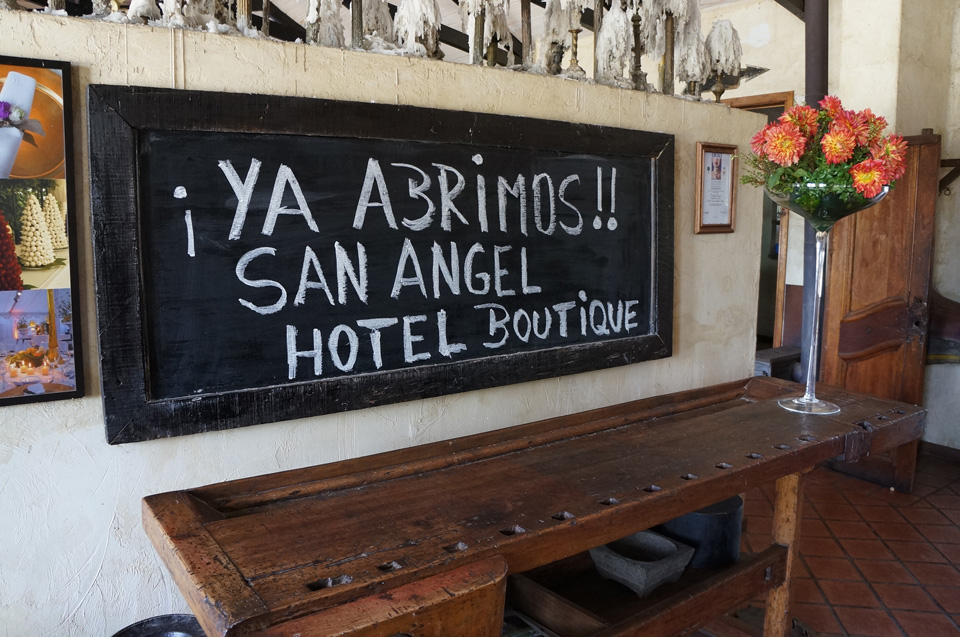 ¡YA ABRIMOS!!
SAN ANGEL
HOTEL BOUTIQUE